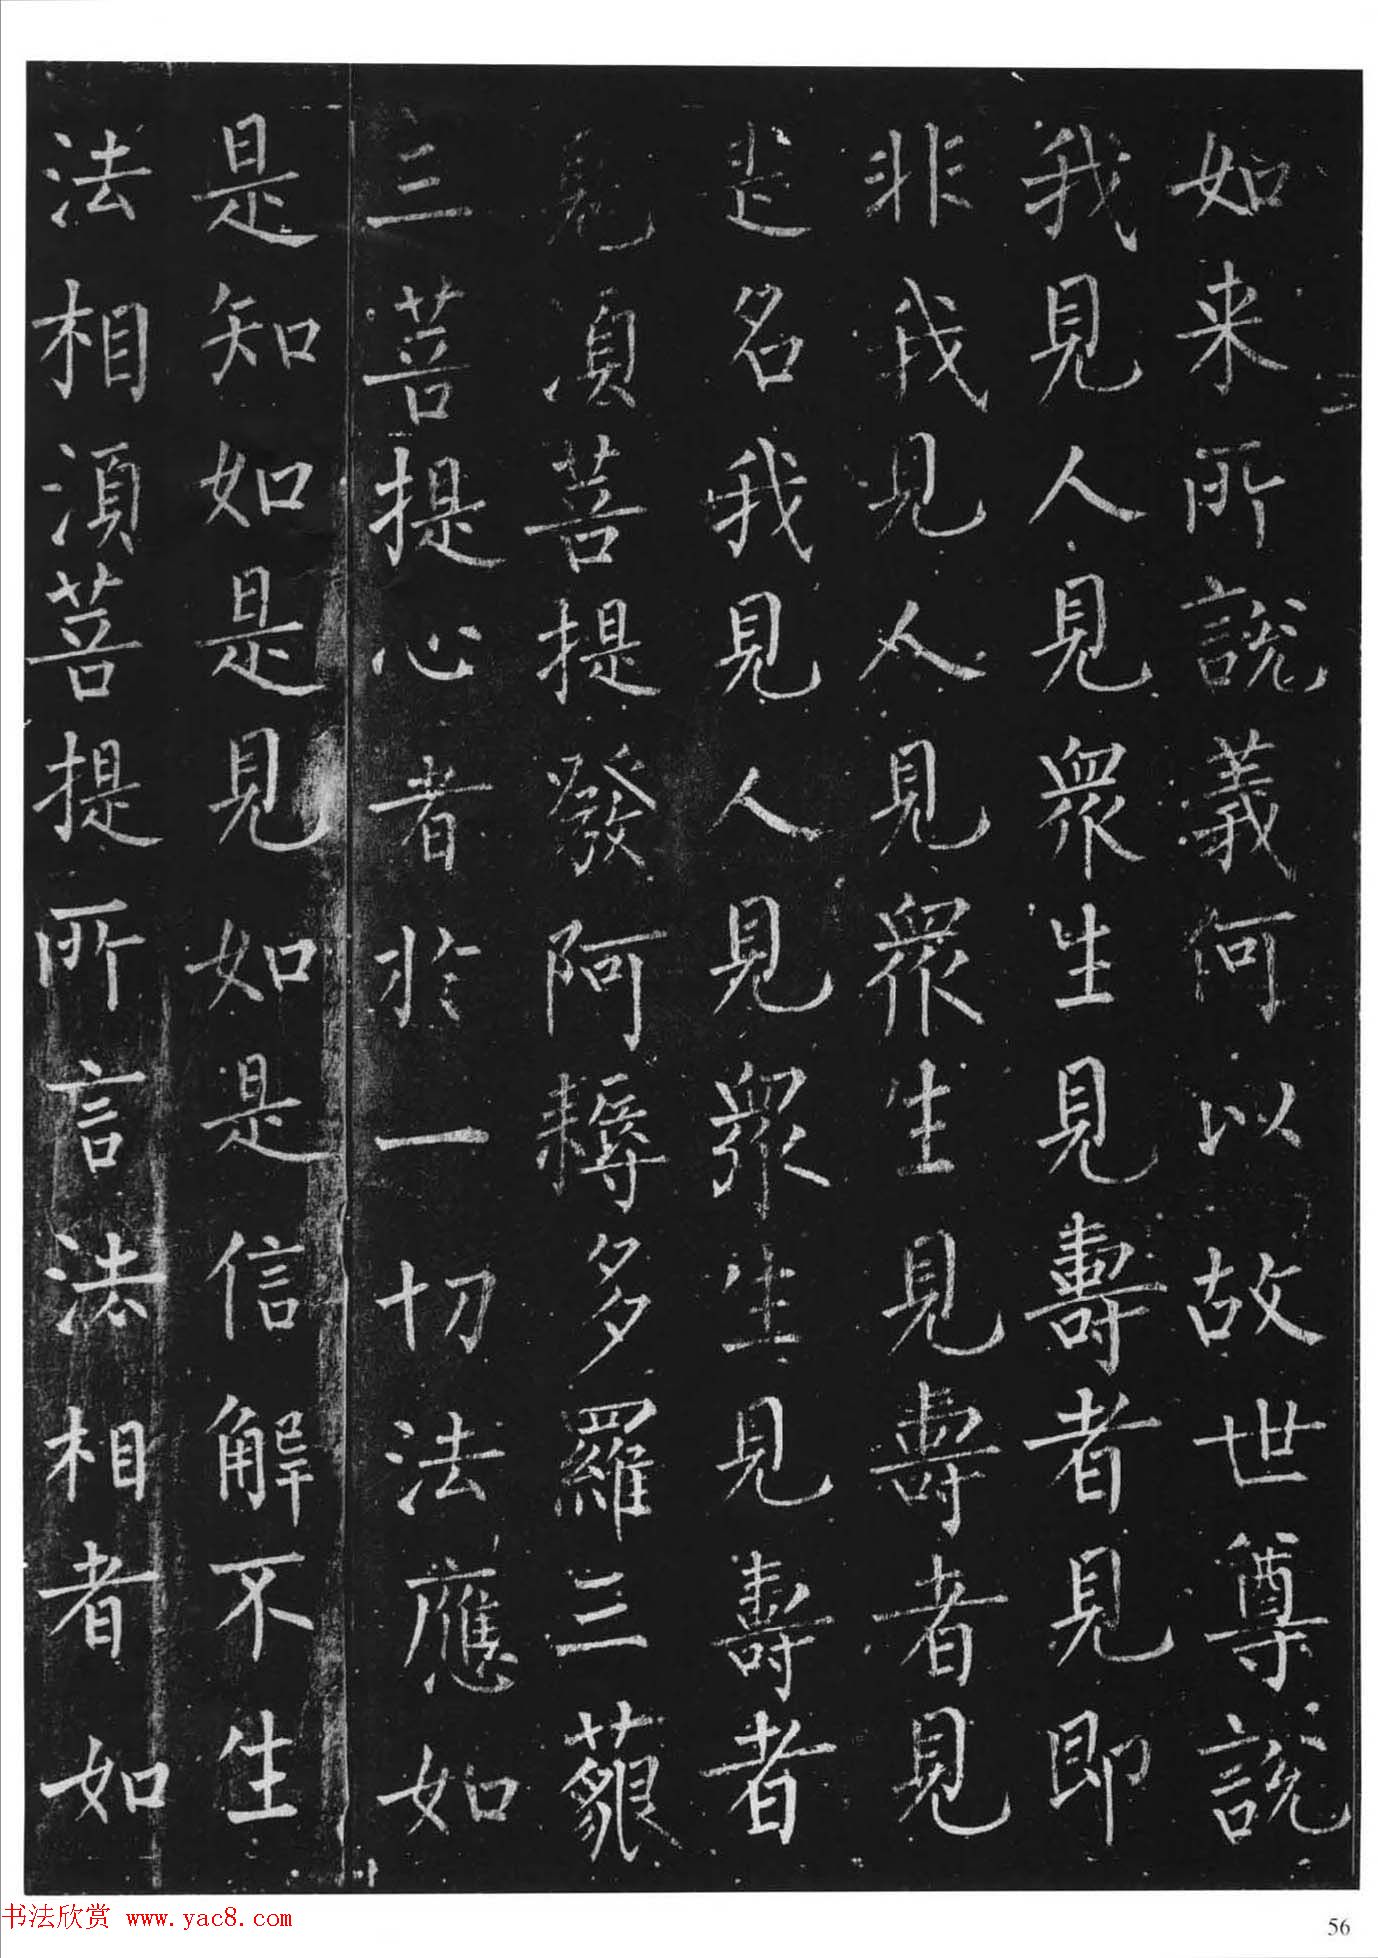 如来所說義何以故世尊說
我見人見衆生見壽者見即
非我見人見衆生見壽者見
是名我見人見衆生見壽者
見湏菩提發阿耨多羅三藐
三菩提心者於一切法應如
是知如是見如是信解不生
法相湏菩提所言法相者如
书法欣赏 www.yac8.com
56